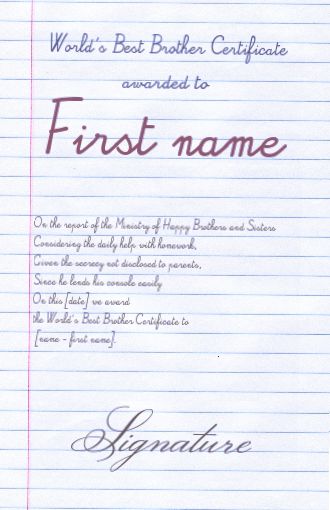 World's Best Brother Certificate
awarded to
First name
On the report of the Ministry of Happy Brothers and Sisters
Considering the daily help with homework,
Given the secrecy not disclosed to parents,
Since he lends his console easily
On this [date] we award
the World's Best Brother Certificate to
[name - first name].
Signature